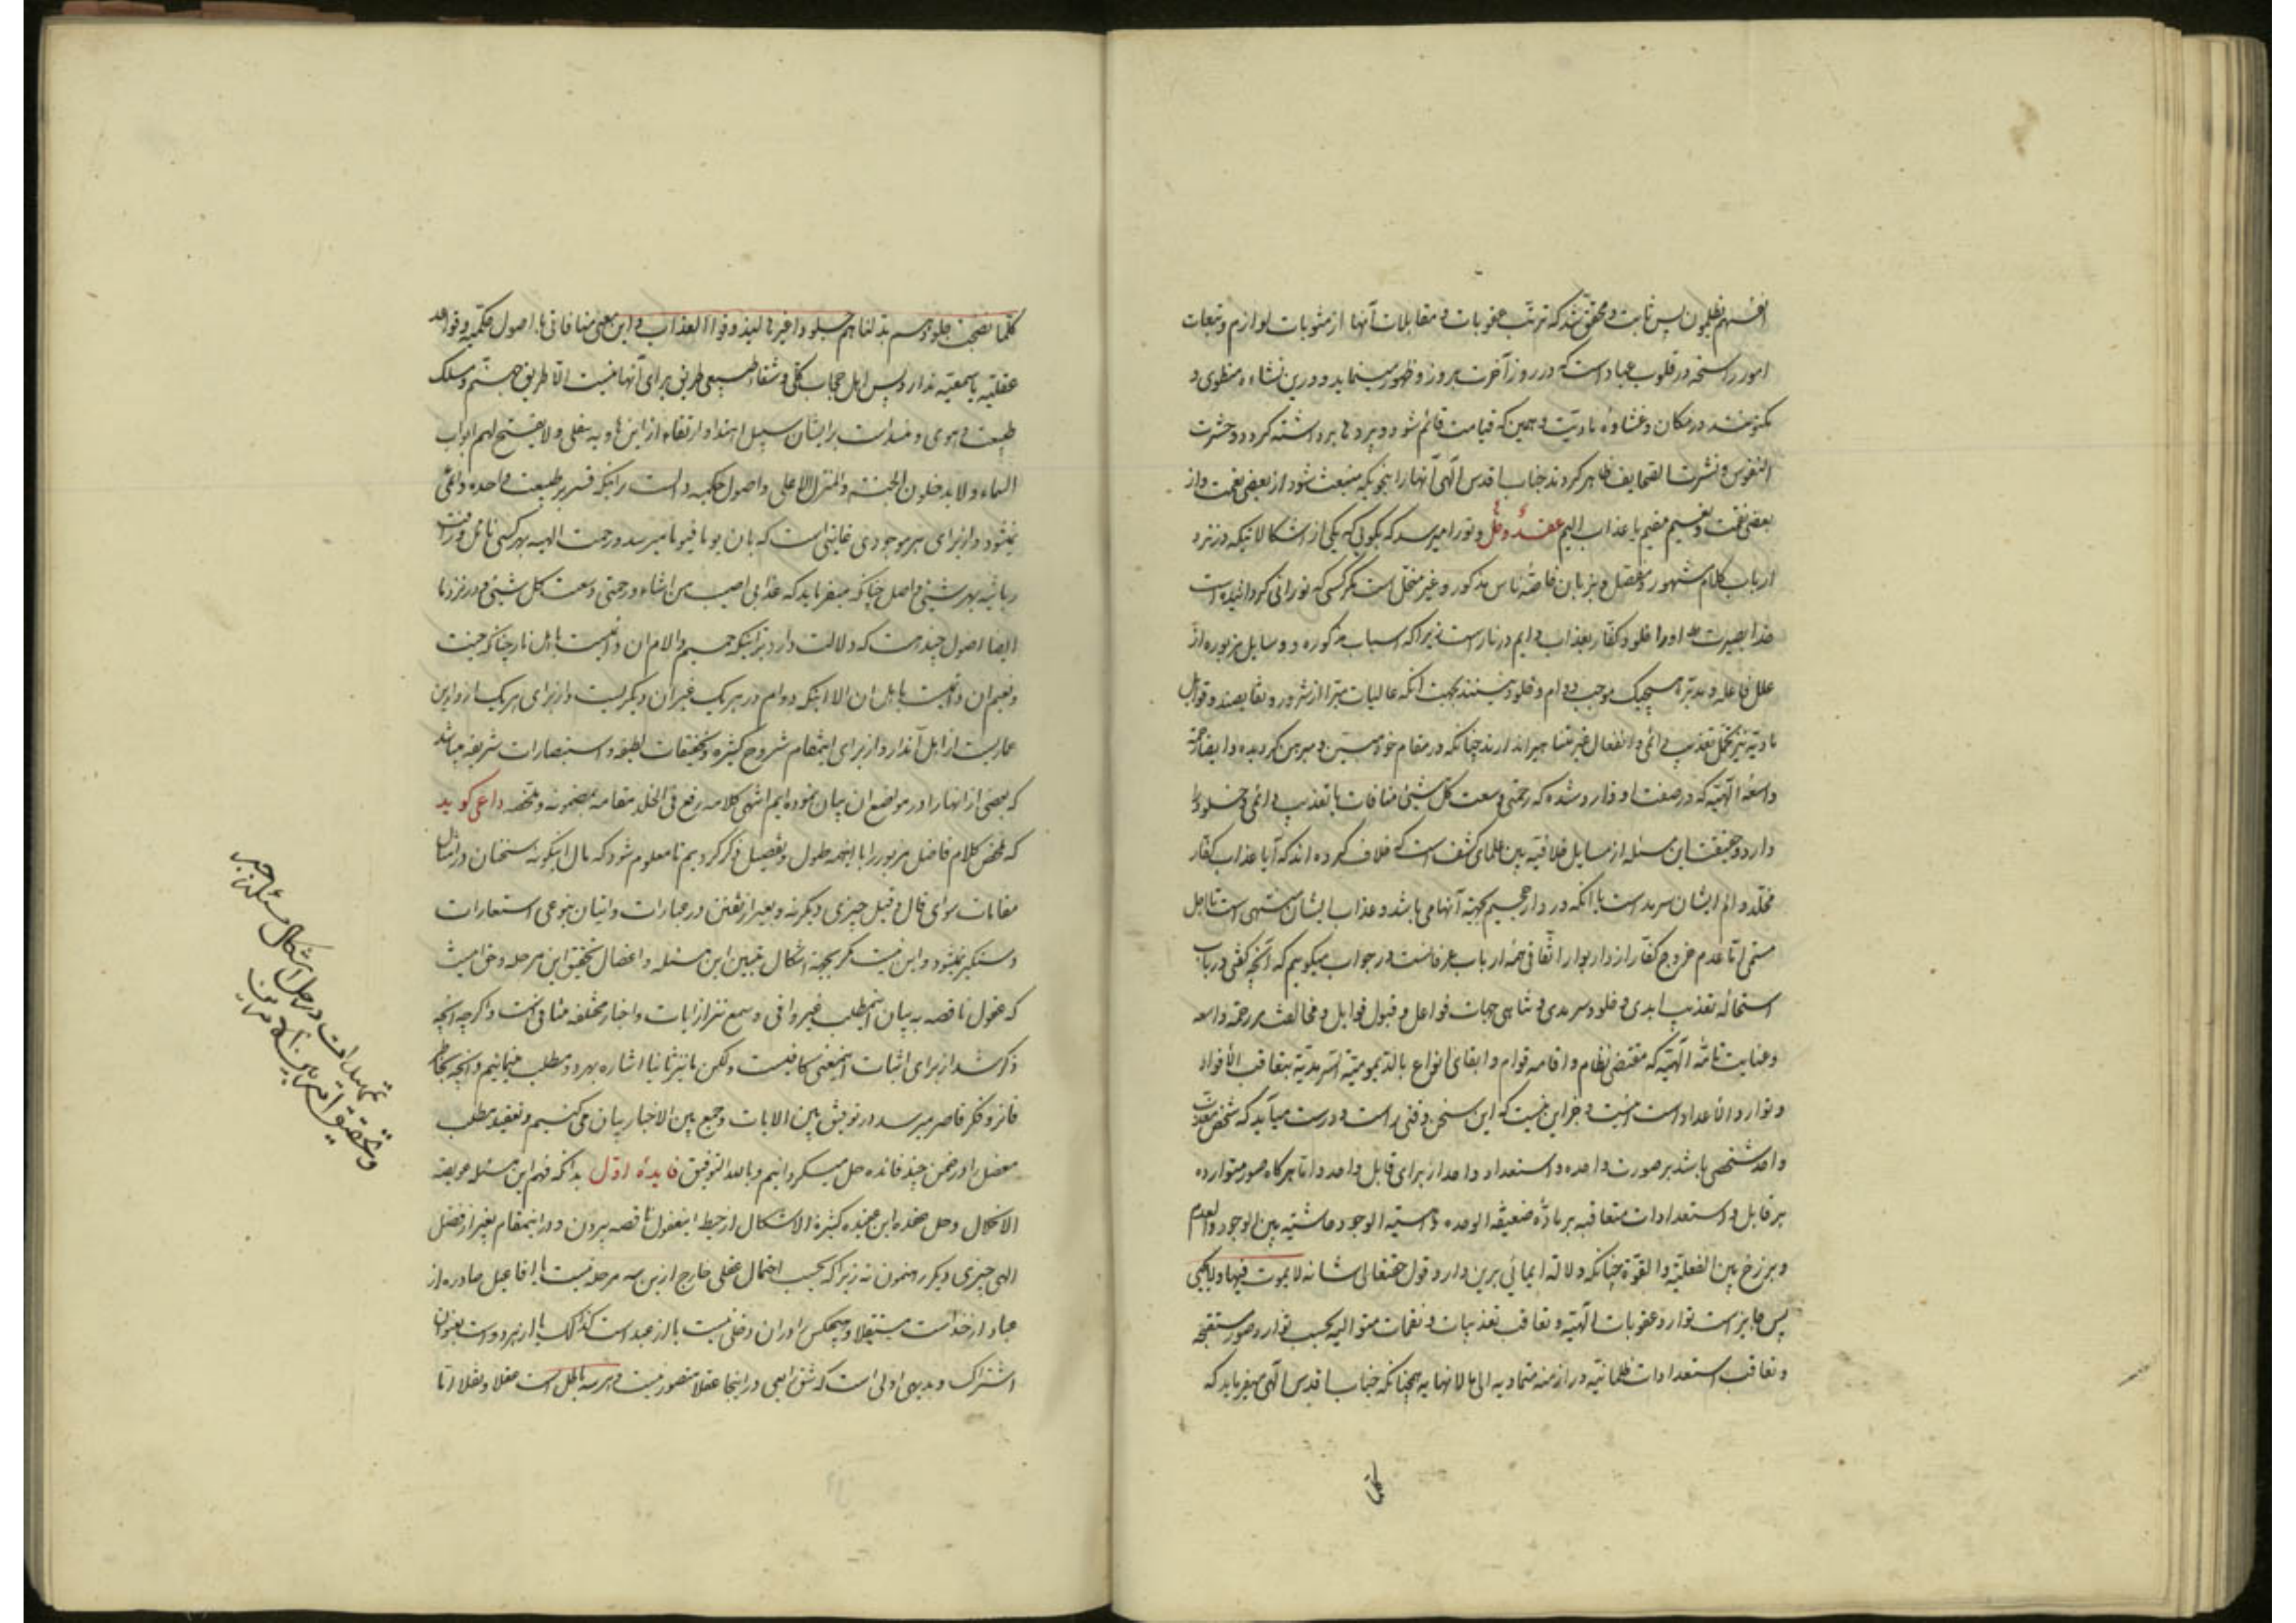 انفسهم یظلمون پس ثابت و محقق شد که ترتب عقوبات و مقابلات آنها از مثوبات لوازم و تبعات
امور راسخه در قلوب عباد است که در روز آخرت بروز و ظهور مینماید و درین نشاءه منطوی و
مکنونند در مکان و غشاوهٔ مادیت و همین که قیامت قائم شود و پرده ها برداشته گردد و حشرت
النفوس و نشرت الصحایف ظاهر گردند جناب اقدس الهی آنها را بنحویکه منبعث شود از بعضی نعمت و از
بعضی نقمت و نعیم مقیم یا عذاب الیم عقدهٔ و حلٌ و تو را میرسد که بگویی که یکی از اشکالاتیکه در نزد
ارباب کلام مشهور و معضل و بزبان خاصهٔ ناس مذکور و غیر منحل است مگر کسی که نورانی گردانیده است
خدا بصیرت او را خلود کفار بعذاب دایم در نار است زیرا که اسباب مذکوره و وسایل مزبوره از
علل فاعله و مدبره هیچیک موجب دوام و خلود نیستند بجهت آنکه عالیات مبرا از شرور و نقایصند و قوابل
مادیه نیز تحمل تعذیب دائمی و انفعال غیر متناهی را ندارند چنانکه در مقام خود مبین و مبرهن گردیده و ایضا رحمة
واسعهٔ الهیه که در صفت او وارد شده که رحمتی وسعت کل شیئ منافات با تعذیب دائمی و خلود
دارد و حقیقت این مسئله از مسایل خلافیه بین علمای کشف است که خلاف کرده اند که آیا عذاب کفار
مخلد و الم ایشان سرمد است یا آنکه در دار جحیم بجهة آنها می باشد و عذاب ایشان منتهی است تا اجل
مسمی اما عدم خروج کفار از دار بوار اتفاقی همهٔ ارباب عرفانست در جواب میگوییم که آنچه گفتی در باب
استحالهٔ تعذیب ابدی و خلود سرمدی و تناهی جهات فواعل و قبول قوابل و مخالفتش بر رحمة واسعه
و عنایت تامهٔ الهیه که مقتضی نظام و اقامه قوام و ابقای انواع بالدیمومیة السرمدیة بتعاقب الأفراد
و توارد الأعداد است اینست و جز این نیست که این سخن وقتی راست و درست میآید که شخص معذب
واحد شخصی باشد بر صورت واحده و استعداد واحد از برای قابل واحد و اما هرگاه صور متوارده
بر قابل و استعدادات متعاقبه بر مادهٔ ضعیفة الوحده و خسیسة الوجود حاشیتیه بین الوجود و العدم
و برزخ بین الفعلیة و القوة چنانکه دلالة ایمائی برین دارد قول حقتعالی شانه لا یموت فیها ولا یحیی
پس جایز است توارد عقوبات الهیه و تعاقب تعذیبات و نقمات متوالیه بحسب توارد صور مستقبحه
و تعاقب استعدادات ظلمانیه در ازمنه متمادیه الی ما لا نهایه همچنانکه جناب اقدس الهی میفرماید که
کلما
کلما نضجت جلودهم بدلناهم جلودا غیرها لیذوقوا العذاب و این معنی منافاتی با اصول حکمیه و قواعد
عقلیه یا سمعیه ندارد پس اهل حجاب کلی و شقاء طبیعی طریق برای آنها نیست الا طریق جهنم و مسلک
طبیعت و هوی و منسد است بر ایشان سبیل اهتدا و ارتقاء از این هاویه سفلی و لا یفتح لهم ابواب
السماء و لا یدخلون الجنة و المنزل الاعلی و اصول حکمیه دالست بر اینکه قسر بر طبیعت واحده دائمی
نمیشود و از برای هر موجودی غایتی است که بان یوما فیوما میرسد و رحمت الهیه بهر کسی نائل و رأفت
ربانیه بهر شیئی واصل چنانکه میفرماید که عذابی اصیب به من اشاء و رحمتی وسعت کل شیئ و در نزد ما
ایضا اصول چند هست که دلالت دارد بر اینکه جحیم و آلام آن دائمیست باهل نار چنانکه جنت
و نعیم آن دائمیست باهل آن الا اینکه دوام در هر یک غیر آن دیگریست و از برای هر یک از دارین
عماریست از اهل آن دار و از برای اینمقام شروح کثیره و تحقیقات لطیفه و استبصارات شریفه میباشد
که بعضی از انها را در مواضع ان بیان نموده ایم انتهی کلامه رفع فی الخلد مقامه بمضمونه و ملخصه داعی کوید
که ملخص کلام فاضل مزبور را با اینهمه طول و تفصیل ذکر کردیم تا معلوم شود که مال اینگونه سخنان در امثال
مقامات سوای قال و قیل چیزی دیگر نه و بغیر از تفنن در عبارات و اتیان بنوعی استعارات
دستگیر نمیشود و این نیست مگر بجهة اشکال تبیین این مسئله و اعضال تحقیق این مرحله و حق اینست
که عقول ناقصه به بیان اینمطلب غیر وافی و سمع نیز از آیات و اخبار مختلفه منافی است و اگرچه آنچه
ذکر شد از برای اثبات اینمعنی کافیست ولکن ما نیز ثانیا اشاره بهر دو مطلب مینمائیم و آنچه بخاطر
فاتر و فکر قاصر میرسد در توفیق بین الایات و جمع بین الاخبار بیان می کنیم و تعقید مطلب
معضل را در ضمن چند فائده حل میگردانیم و بالله التوفیق فایدهٔ اوّل بدانکه فهم این مسئله عویصه
الانحلال و حل عقدهٔ این عقیده کثیرة الاشکال از حیطهٔ اینعقول ناقصه بیرون و در اینمقام بغیر از فضل
الهی چیزی دیگر رهنمون نه زیرا که بحسب احتمال عقلی خارج ازین سه مرحله نیست یا افاعیل صادره از
عباد از خداست مستقلا و هیچکس را در آن دخلی نیست یا از عبد است کذلک یا از هر دو است بعنوان
اشتراک و بدیهی اولی است که شق رابعی در اینجا عقلا متصور نیست و هر سه باطل است عقلا و نقلا اما
تمهیدات در حل اشکال مسئله جبر
و تحقیق امر بین الامرین